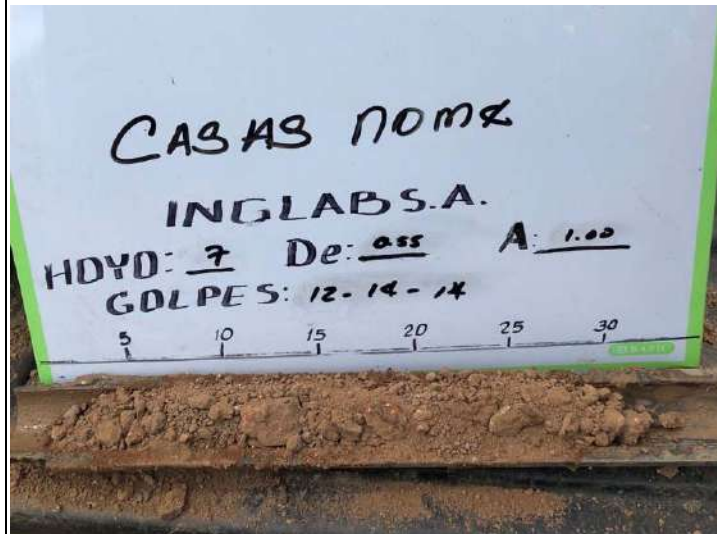 CASAS NOMZ
INGLAB S.A.
HOYO: 7 De: 0.55 A: 1.00
GOLPES: 12-14-14
5 10 15 20 25 30